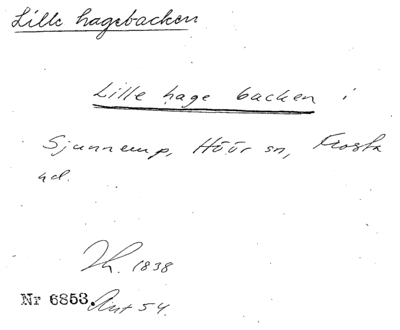 Lille hagebacken
Lille hage backen i
Sjunnerup, Höör sn, Frosta
hd.
Th. 1838
Nr 6853. Ant 54.